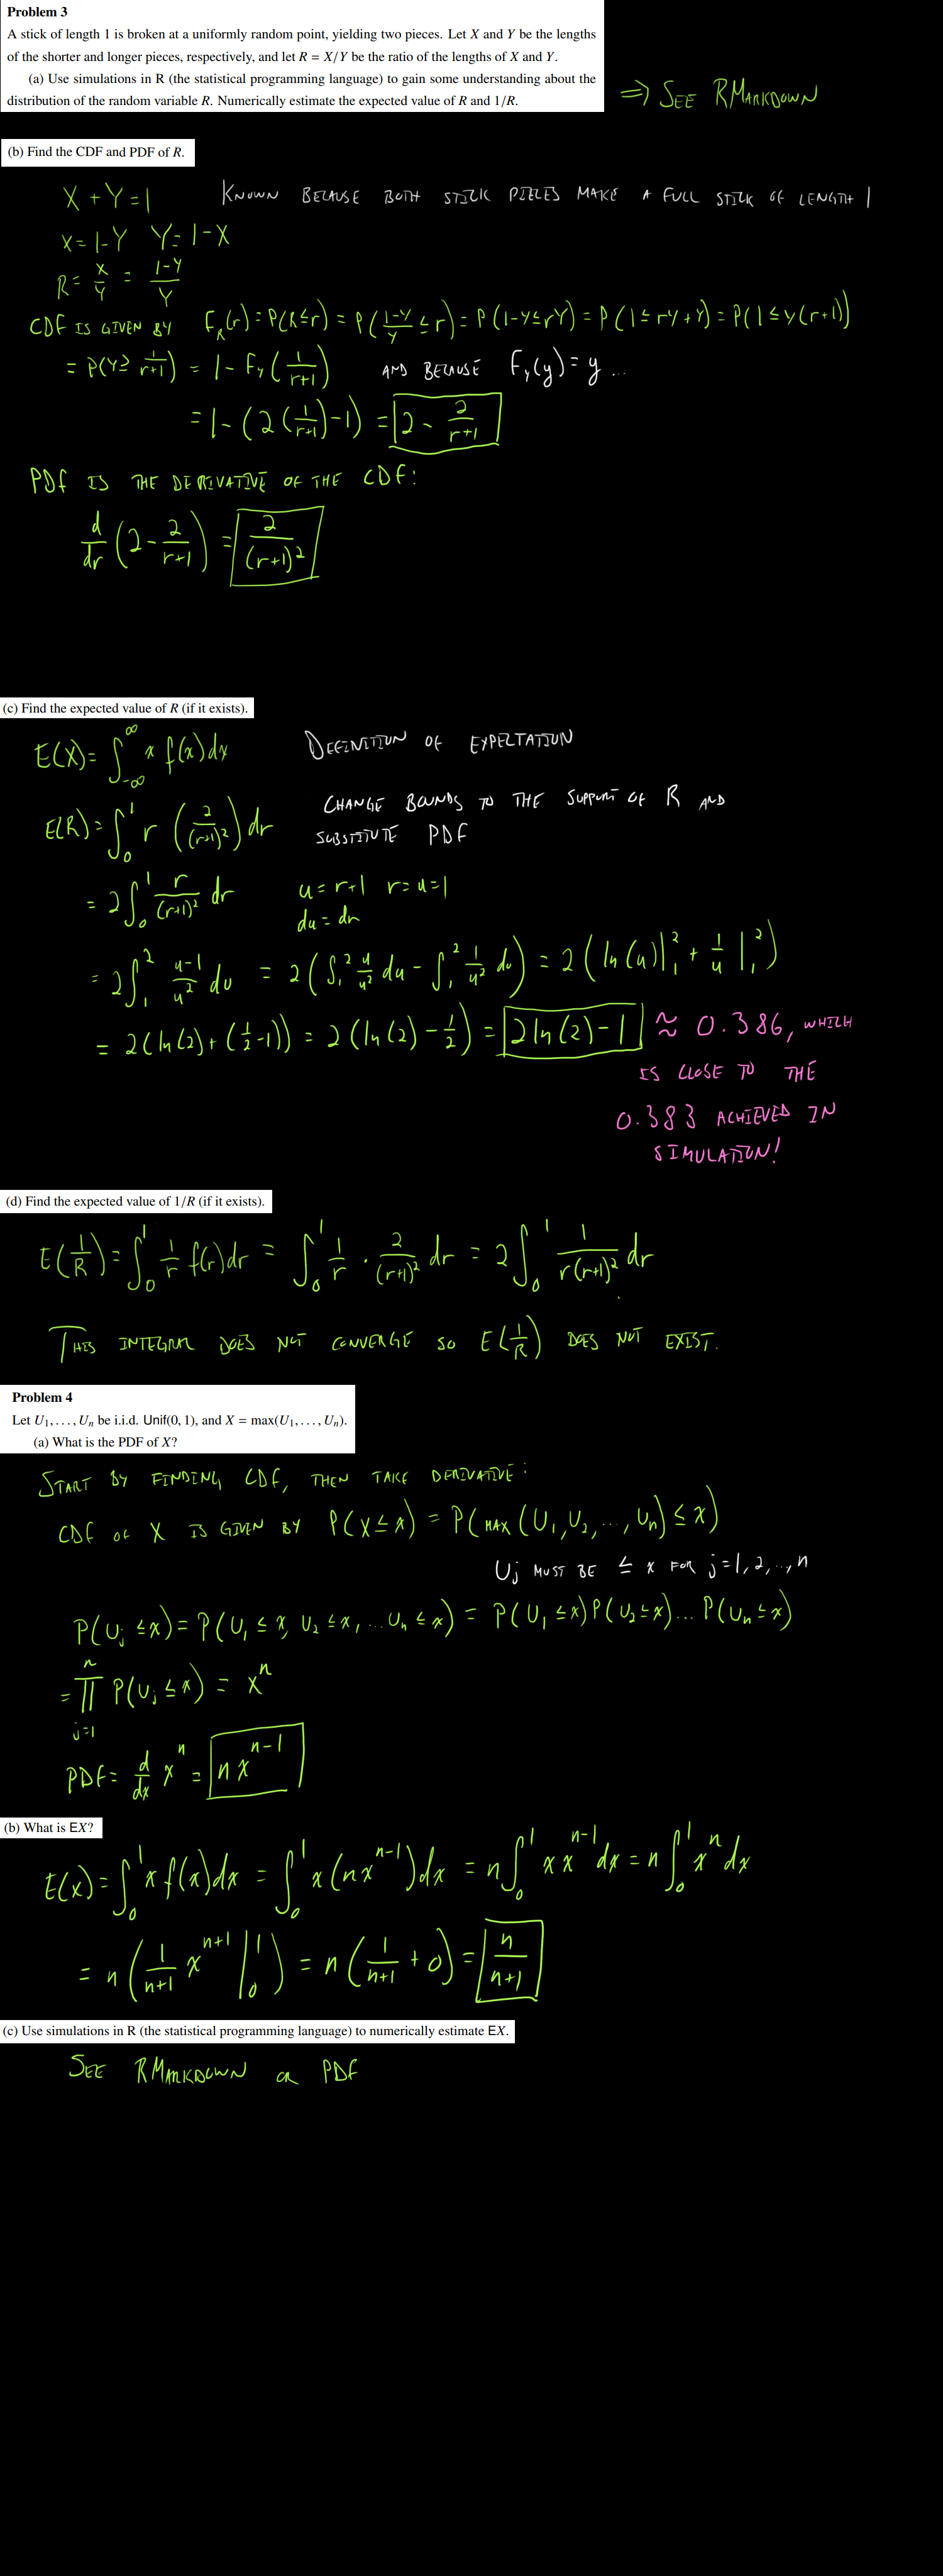 Problem 3
A stick of length 1 is broken at a uniformly random point, yielding two pieces. Let X and Y be the lengths
of the shorter and longer pieces, respectively, and let R = X/Y be the ratio of the lengths of X and Y.
(a) Use simulations in R (the statistical programming language) to gain some understanding about the
distribution of the random variable R. Numerically estimate the expected value of R and 1/R.
⇒ SEE RMARKDOWN
(b) Find the CDF and PDF of R.
X + Y = 1 KNOWN BECAUSE BOTH STICK PIECES MAKE A FULL STICK OF LENGTH 1
X = 1-Y Y = 1-X
R = X/Y = (1-Y)/Y
CDF IS GIVEN BY F_R(r) = P(R≤r) = P((1-Y)/Y ≤ r) = P(1-Y≤rY) = P(1≤rY+Y) = P(1≤Y(r+1))
= P(Y≥ 1/(r+1)) = 1 - F_Y(1/(r+1)) AND BECAUSE F_Y(y) = y ...
= 1-(2(1/(r+1))-1) = 2 - 2/(r+1)
PDF IS THE DERIVATIVE OF THE CDF:
d/dr (2 - 2/(r+1)) = 2/(r+1)²
(c) Find the expected value of R (if it exists).
E(X) = ∫_{-∞}^{∞} x f(x)dx DEFINITION OF EXPECTATION
E(R) = ∫_0^1 r (2/(r+1)²) dr CHANGE BOUNDS TO THE SUPPORT OF R AND
SUBSTITUTE PDF
= 2∫_0^1 r/(r+1)² dr u = r+1 r = u=1
du = dr
= 2∫_1^2 (u-1)/u² du = 2(∫_1^2 u/u² du - ∫_1^2 1/u² du) = 2(ln(u)|_1^2 + 1/u|_1^2)
= 2(ln(2) + (1/2 -1)) = 2(ln(2) - 1/2) = 2ln(2)-1 ≈ 0.386, WHICH
IS CLOSE TO THE
0.383 ACHIEVED IN
SIMULATION!
(d) Find the expected value of 1/R (if it exists).
E(1/R) = ∫_0^1 1/r f(r)dr = ∫_0^1 1/r · 2/(r+1)² dr = 2∫_0^1 1/(r(r+1)²) dr
THIS INTEGRAL DOES NOT CONVERGE SO E(1/R) DOES NOT EXIST.
Problem 4
Let U₁, . . . , Uₙ be i.i.d. Unif(0, 1), and X = max(U₁, . . . , Uₙ).
(a) What is the PDF of X?
START BY FINDING CDF, THEN TAKE DERIVATIVE:
CDF OF X IS GIVEN BY P(X≤x) = P(MAX(U₁,U₂,...,Uₙ) ≤ x)
Uⱼ MUST BE ≤ x FOR j=1,2,...,n
P(Uⱼ ≤x) = P(U₁ ≤ x, U₂ ≤x, ... Uₙ ≤x) = P(U₁ ≤x)P(U₂≤x)... P(Uₙ≤x)
= ∏_{j=1}^n P(Uⱼ≤x) = xⁿ
PDF = d/dx xⁿ = nxⁿ⁻¹
(b) What is EX?
E(x) = ∫_0^1 x f(x)dx = ∫_0^1 x(nxⁿ⁻¹)dx = n∫_0^1 x xⁿ⁻¹ dx = n∫_0^1 xⁿ dx
= n(1/(n+1) xⁿ⁺¹ |_0^1) = n(1/(n+1) + 0) = n/(n+1)
(c) Use simulations in R (the statistical programming language) to numerically estimate EX.
SEE RMARKDOWN OR PDF